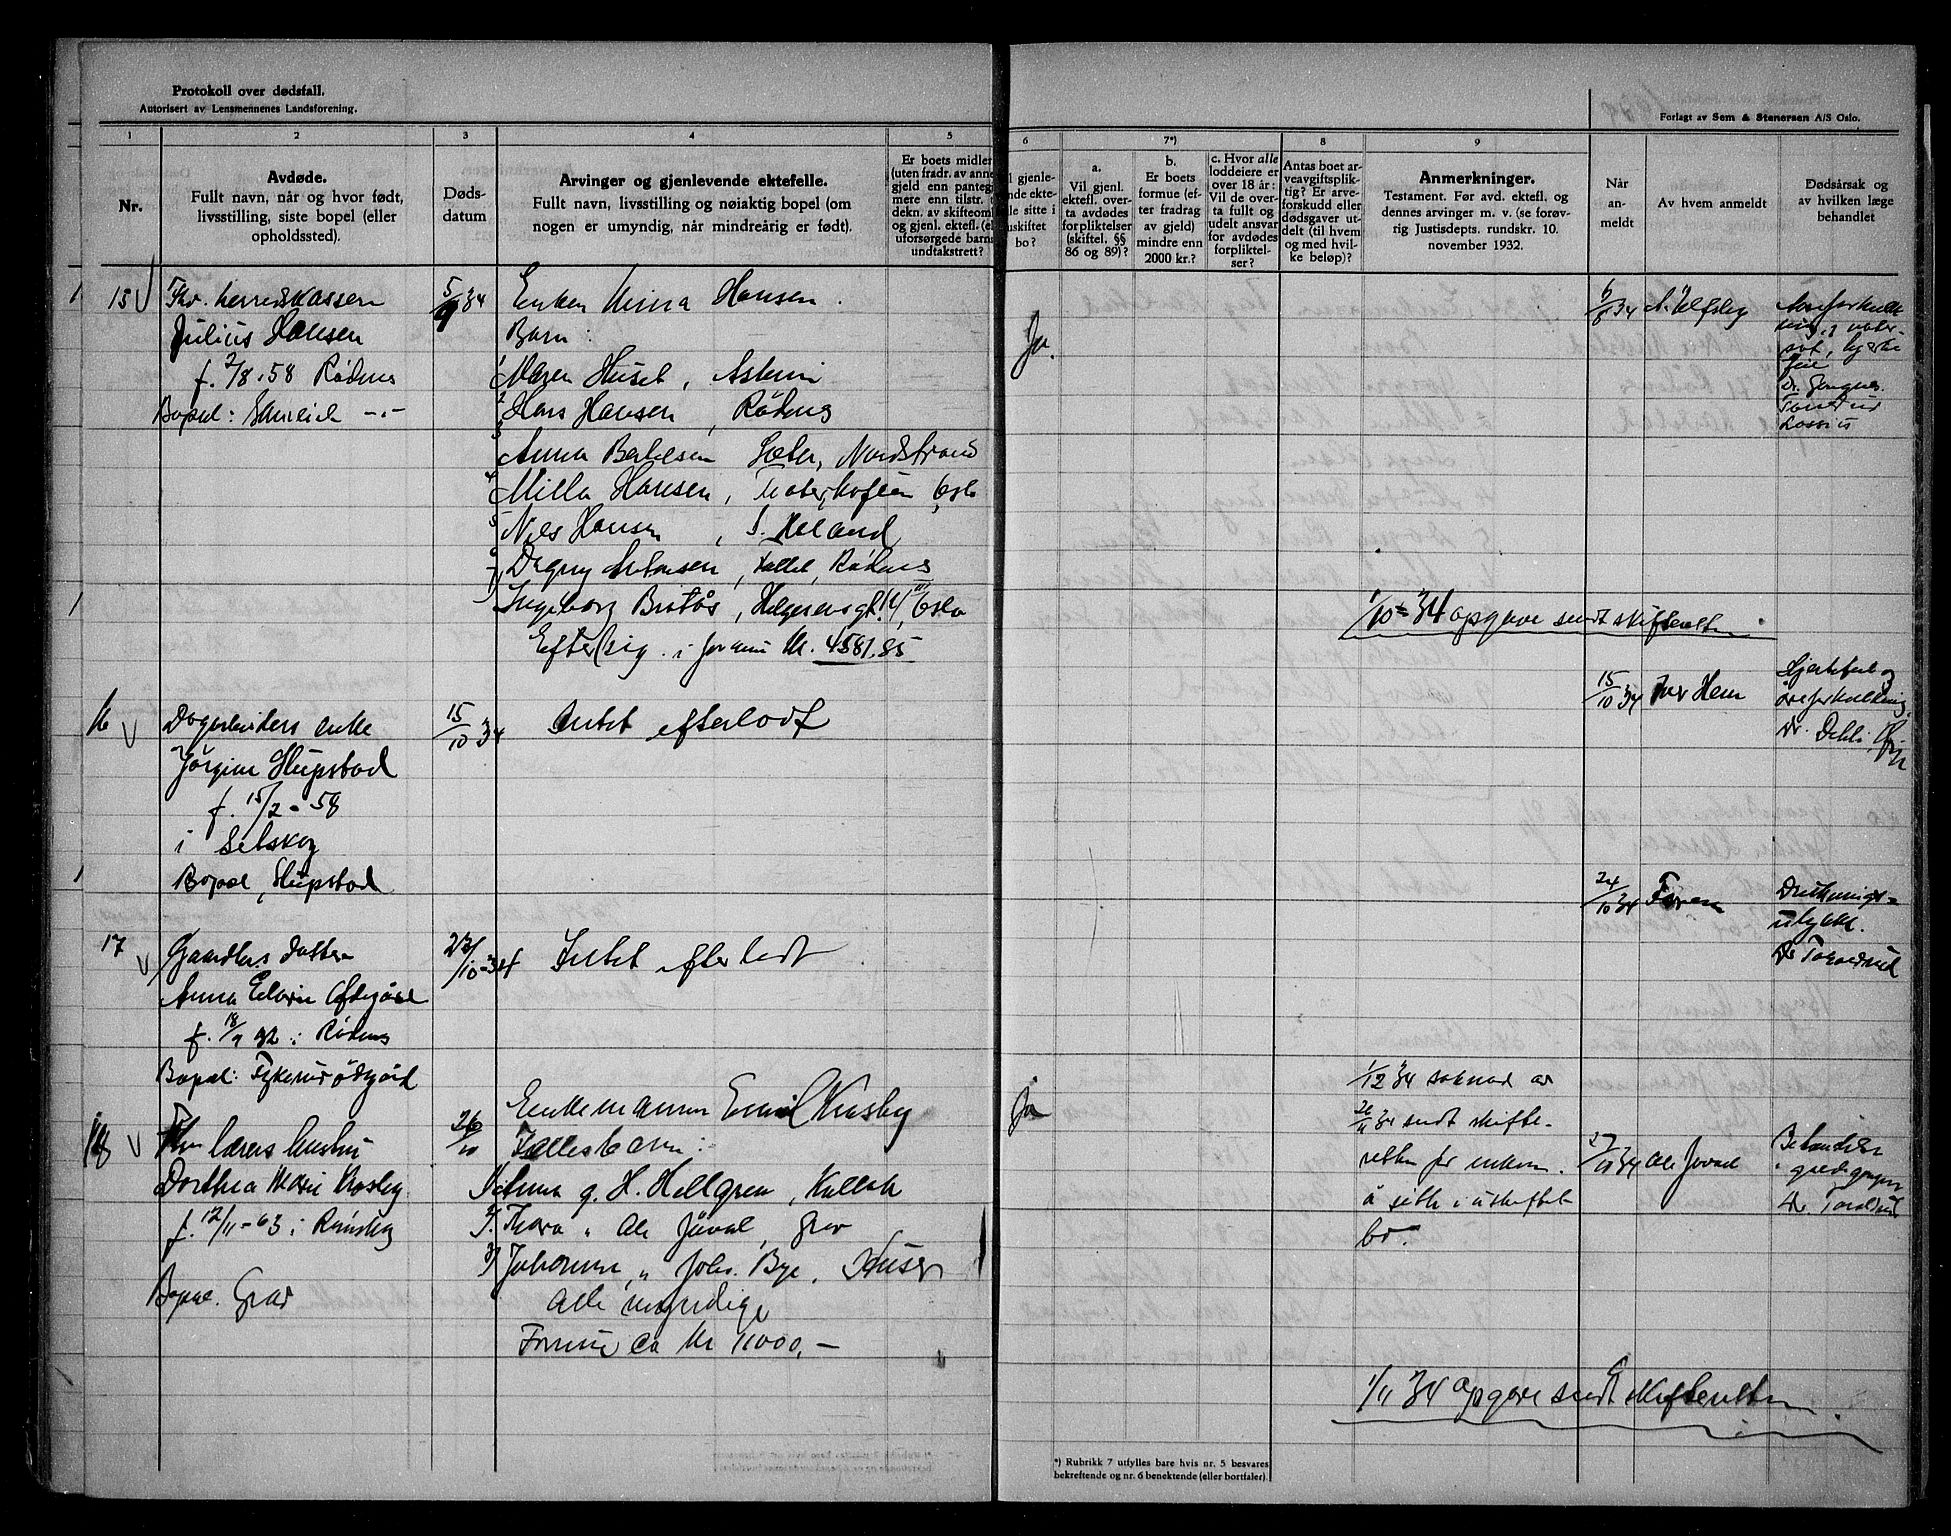 Protokoll over dødsfall.
Autorisert av Lensmennenes Landsforening.
Forlagt av Sem & Stenersen A/S Oslo.
1 2 3 4 5 6 7*) 8 9
Nr.
Avdøde.
Fullt navn, når og hvor født,
livsstilling, siste bopel (eller
opholdssted).
Døds-
datum
Arvinger og gjenlevende ektefelle.
Fullt navn, livsstilling og nøiaktig bopel (om
nogen er umyndig, når mindreårig er født).
Er boets midler
(uten fradr. av anne
gjeld enn pantegj
mere enn tilstr. t
dekn. av skifteoml
og gjenl. ektefl. (el
uforsørgede barns
undtakstrett?
l gjenle-
nde ekte-
lle sitte i
uskiftet
bo?
a.
Vil gjenl.
ektefl. over-
ta avdødes
forpliktelser
(skiftel. §§
86 og 89)?
b.
Er boets
formue (ef-
ter fradrag
av gjeld)
mindre enn
2000 kr.?
c. Hvor alle
loddeiere er
over 18 år:
Vil de over-
ta fullt og
udelt ansvar
for avdødes
forpliktel-
ser?
Antas boet ar-
veavgiftsplik-
tig? Er arve-
forskudd eller
dødsgaver ut-
delt (til hvem
og med hvil-
ke beløp)?
Anmerkninger.
Testament. Før avd. ektefl. og
dennes arvinger m. v. (se forøv-
rig Justisdepts. rundskr. 10.
november 1932.
Når
an-
meldt
Av hvem anmeldt
Dødsårsak og
av hvilken læge
behandlet
15 Fhv. herredskasserer
Julius Hansen
f. 2/8-58 Rødenes
Bopæl:
5/9 34
Enken Mina Hansen.
Barn:
1 Maren Huset, Askim
2 Hans Hansen, Rødenes
3 Anna Bertelsen Sæter, Nordstrand
4 Milla Hansen, Oslo
5 Nils Hansen, S. Høland
6 Dagny Antonsen, Rødenes
7 Ingeborg Bråtås, Helgesensgt. 14 III, Oslo
Efterl. sig i formue kr. 4581,85
Ja.
1/10-34 opgave sendt skifteretten
6/8 34
Åreforkalk-
Dr.
16 Dagarbeiders enke
Jørgine Hupstad
f. 15/2-58
i Setskog
Bopæl, Hupstad
15/10 34
Intet efterladt
15/10 34 Iver Hem
Hjertefeil og
åreforkalkning.
Dr.
17 Gaardbr.s datter
Anna
f. 18/9 92 i Rødenes
Bopæl:
10-34
Intet efterladt
24/10 34
Druknings-
ulykke.
Dr Toraldrud
18 Fhv lærers hustru
Dorthea Marie Krosby
f. 12/11-63 i Rømskog
Bopæl. Grav
26/10
Enkemannen Emil Krosby
Fællesbarn:
1 Anna g. H. Hellgren, Kullebk
2. Thora " Ole Juval, Grav
3) Johanne " Johs. Bye,
Alle myndige
Formue ca kr 11000,-
Ja
1/12 34 søknad av
26/11 34 sendt skifte-
retten for enkem.
å sitte i uskiftet
bo.
27/10 34 Ole Juval
Dr. Toraldrud
1/11 34 opgave sendt skifteretten.
*) Rubrikk 7 utfylles bare hvis nr. 5 besvares
bekreftende og nr. 6 benektende (eller bortfaler).